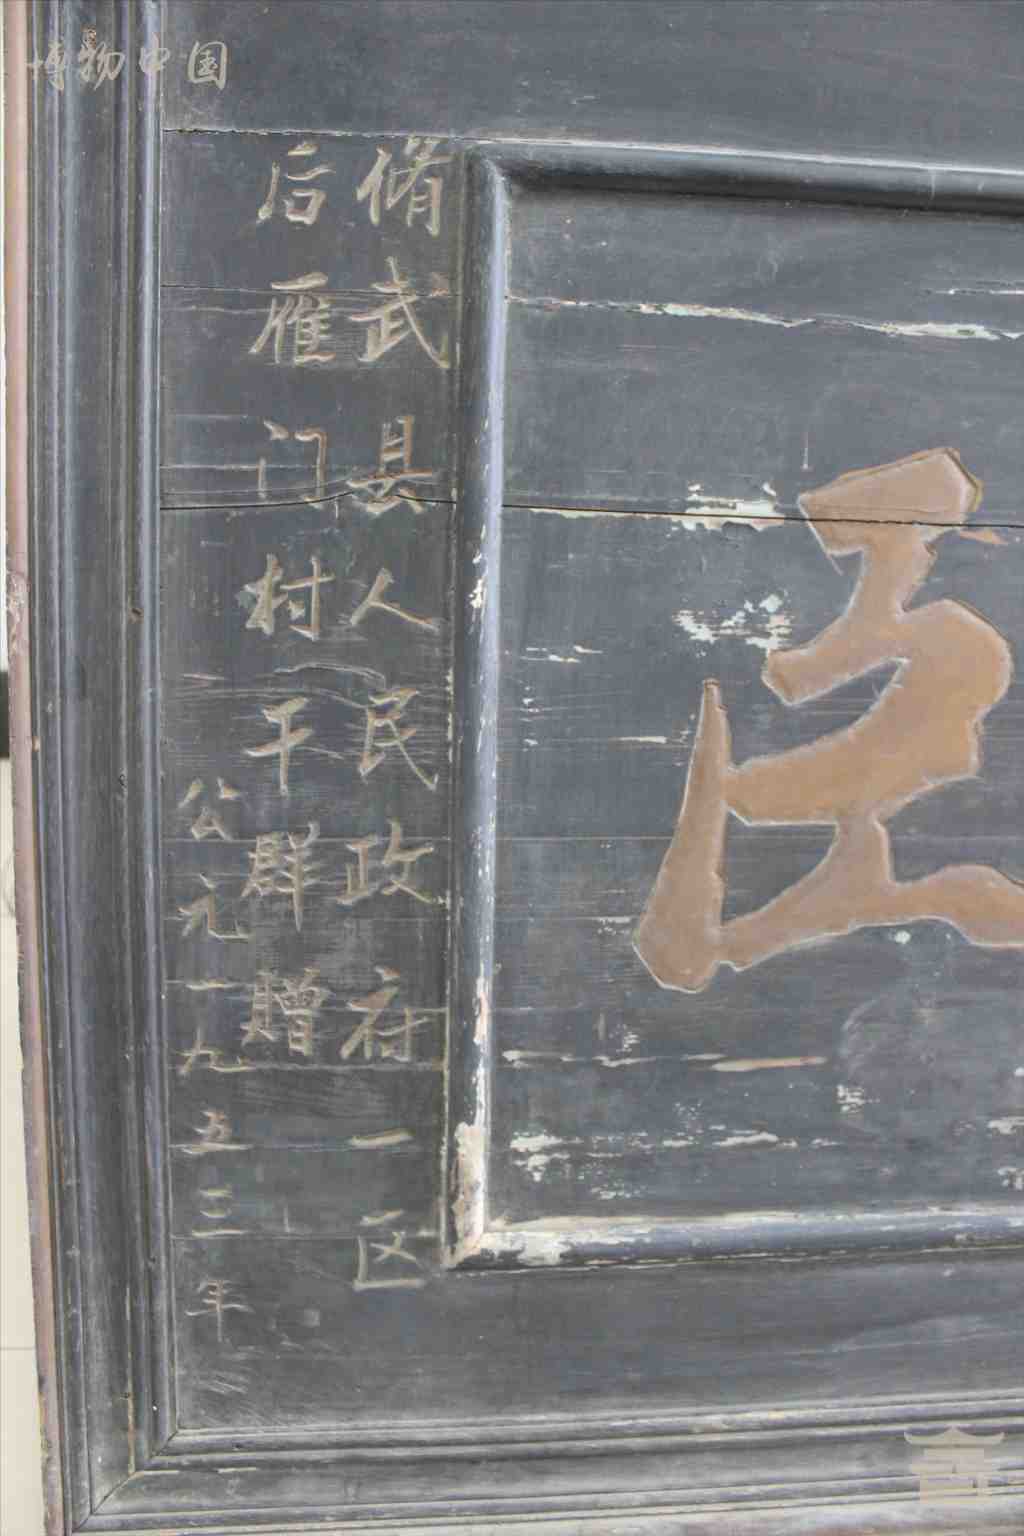 博物中国
脩武县人民政府一区
后雁门村干群赠
公元一九五三年